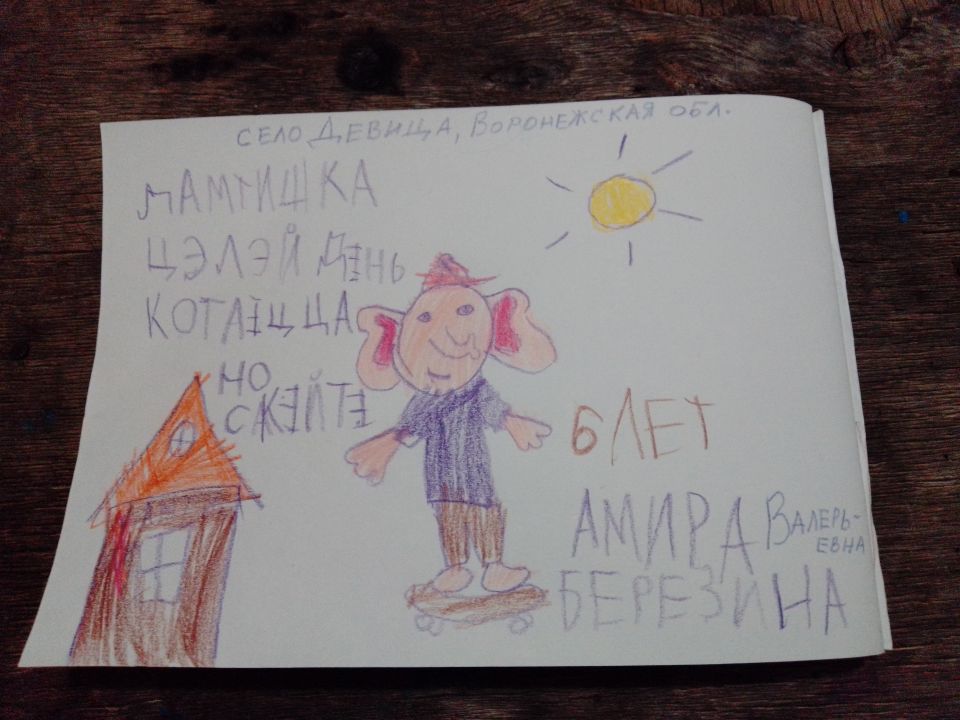 СЕЛО ДЕВИЦА, ВОРОНЕЖСКАЯ ОБЛ.
МАМТИШКА
ЦЭЛЭЙ ДЕНЬ
КОТАЕЦЦА
НО
СКЕЙТЕ
6 ЛЕТ
АМИРА ВАЛЕРЬ-
ЕВНА
БЕРЕЗИНА